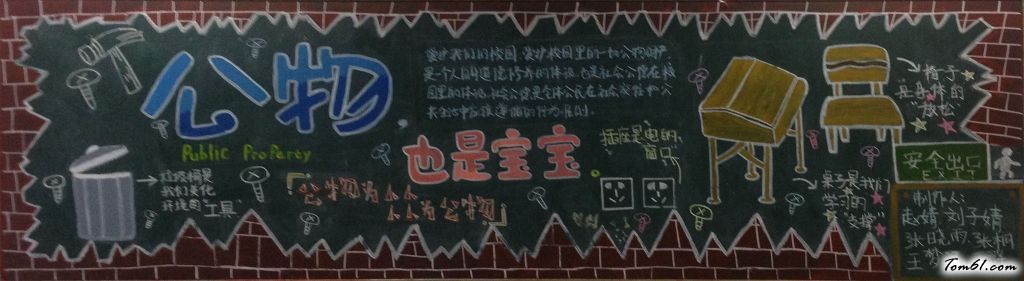 公物
Public ProPerty
也是宝宝
爱护我们的校园,爱护校园里的一切公物财产
是个人的道德修养的体现,也是社会公德在校
园里的体现,社会公德是全体公民在社会交往和公
共生活中应该遵循的行为准则。
垃圾桶是
我们美化
环境的"工具"
「公物为人人
人人为公物」
插座是电的
窗口
椅子
是身体的
"放松"
桌子是我们
学习的
"支撑"
安全出口
EXIT
制作人:
赵婧 刘子婧
张晓雨 张桐
王
Tom61.com